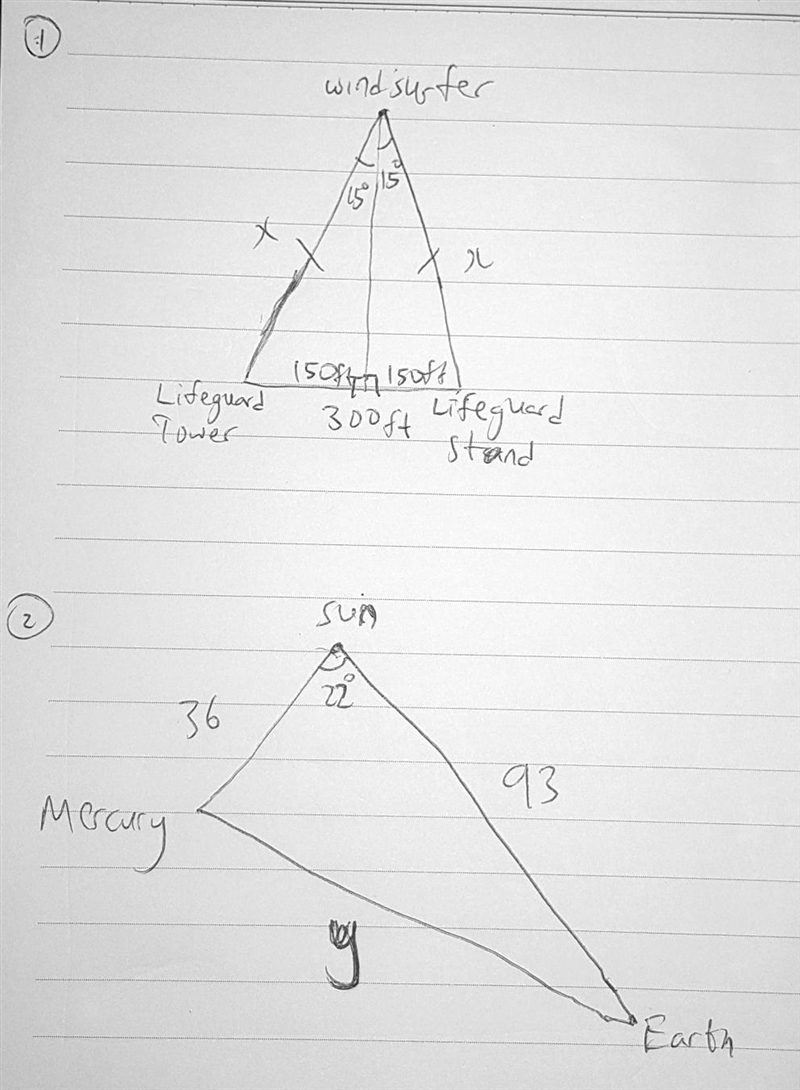 1
windsurfer
15° 15°
x x
150ft 150ft
Lifeguard Tower
300ft
Lifeguard Stand
2
Sun
22°
36
93
Mercury
y
Earth